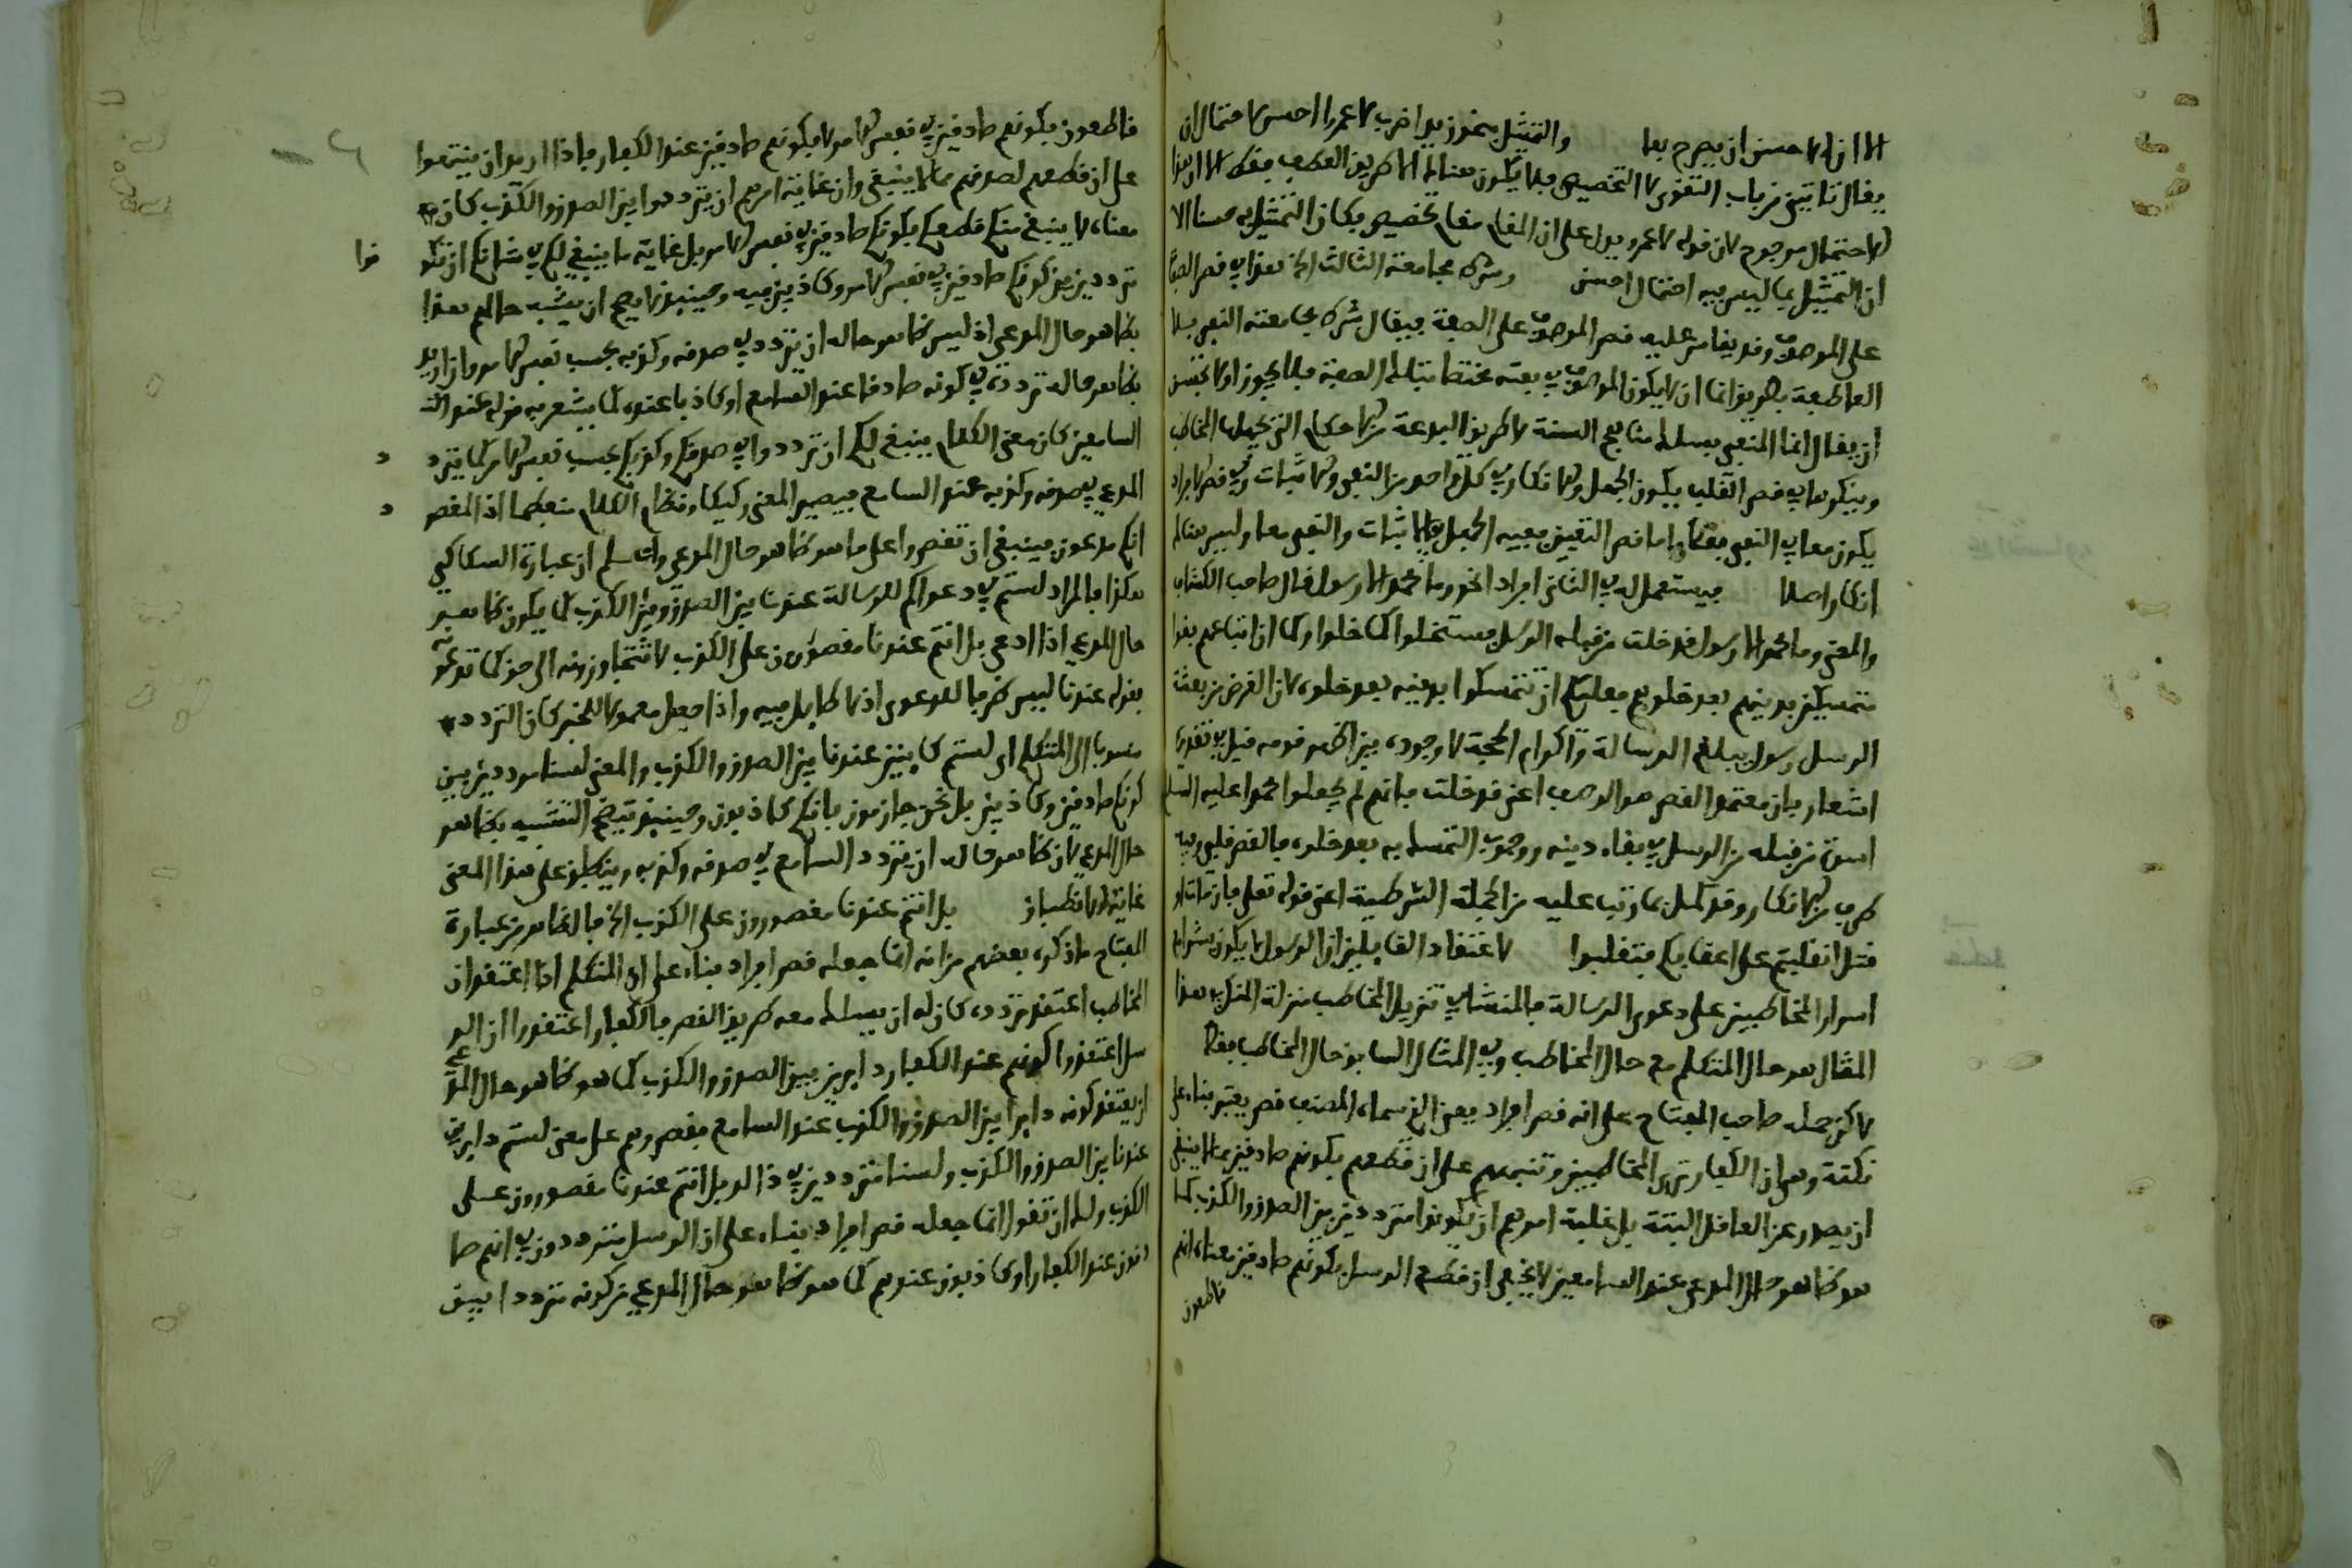 الا ان الاحسن ان يصرح بها والتمثيل بنحو زيدا ضرب لا عمرا احسن لاحتمال ان
يقال تاتيني من باب التقوى لا التخصيص فلا يكون هناك الا طريق العطف فقط الا ان هذا
الاحتمال مرجوح لان قوله لا عمرو يدل على ان المقام مقام تخصيص فكان التمثيل به حسنا الا
ان التمثيل بما ليس فيه احتمال احسن وشرط مجامعته الثالث الخ هذا في قصر الصفة
على الموصوف وقد يقاس عليه قصر الموصوف على الصفة فيقال شرط مجامعته النفي بلا
العاطفة بطريق انما ان لا يكون الموصوف في نفسه مختصا بتلك الصفة فلا يجوز او لا يحسن
ان يقال انما المتقي يسلك مناهج السنة لا طريق البدعة من الاحكام التي يجهلها المخاطب
وينكرها في قصر القلب يكون الجهل والانكار في كل واحد من النفي والاثبات وفي قصر الافراد
يكون معا في النفي فقط واما قصر التعيين ففيه الجهل في الاثبات والنفي معا وليس هناك
انكار اصلا فيستعمل له في الثاني افرادا نحو وما محمد الا رسول قال صاحب الكشاف
والمعنى وما محمد الا رسول قد خلت من قبله الرسل فسيخلوا كما خلوا وكما ان اتباعهم بقوا
متمسكين بدينهم بعد خلوهم فعليكم ان تتمسكوا بدينه بعد خلوه لان الغرض من بعثة
الرسل رسول تبليغ الرسالة والزام الحجة لا وجوده بين اظهر قومه قيل في تقديره
اشعار بان معتمد القصر هو الوصف اعني قد خلت فانهم لم يجعلوا محمدا عليه السلام
اسوة من قبله من الرسل في بقاء دينه ووجوب التمسك به بعد خلوه فالقصر قلب وفيه
طرف من الانكار وقد كمل بما رتب عليه من الجملة الشرطية اعني قوله تعالى افان مات او
قتل انقلبتم على اعقابكم فتغلبوا لاعتقاد القايلين ان الرسول لا يكون بشرا مع
اصرار المخاطبين على دعوى الرسالة فالمنشا في تنزيل المخاطب منزلة المنكر في هذا
المثال هو حال المتكلم مع حال المخاطب وفي المثال السابق حال المخاطب فقط
لاكن حمله صاحب المفتاح على انه قصر افراد يعني الذي سماه المصنف قصر تعيين بناء على
نكتة وهي ان الكفار ترى المخاطبين وتنبههم على ان قطعهم بكونهم صادقين مما لا ينبغي
ان يصدر عن العاقل البتة بل غاية امرهم ان يكونوا مترددين بين الصدق والكذب كما
هو ظاهر حال المدعي عند السامعين لا يخفى ان قطع الرسل بكونهم صادقين معناه انهم
قاطعون
قاطعون بكونهم صادقين في نفس الامر لا بكونهم صادقين عند الكفار فاذا اريد ان ينبهوا
على ان قطعهم لصدقهم مما لا ينبغي وان غاية امرهم ان يترددوا بين الصدق والكذب كان
معناه لا ينبغي منكم قطعكم بكونكم صادقين في نفس الامر بل غاية ما ينبغي لكم في شانكم ان تكو
نوا
مترددين بين كونكم صادقين في نفس الامر وكاذبين فيه وحينئذ لا يصح ان يشبه حالهم هذا
بظاهر حال المدعي اذ ليس ظاهر حاله ان يتردد في صدقه وكذبه بحسب نفس الامر وان اريد
بظاهر حاله تردده في كونه صادقا عند السامع او كاذبا عنده كما يشعر به قوله عند
السامعين كان معنى الكلام ينبغي لكم ان ترددوا في صدقكم وكذبكم بحسب نفس الامر كما يترد
د
المدعي في صدقه وكذبه عند السامع فيصير المعنى ركيكا ونظام الكلام منفصما اذ المقصو
د
انكم مدعون فينبغي ان تقصروا على ما هو ظاهر حال المدعي واعلم ان عبارة السكاكي
هكذا فالمراد لستم في دعواكم للرسالة عندنا بين الصدق وبين الكذب كما يكون ظاهر
حال المدعي اذا ادعى بل انتم عندنا مقصورون على الكذب لا تتجاوزونه الى حق كما تدعونه
بقوله عندنا ليس ظرفا للدعوى اذ لا طايل فيه واذا جعل معمولا للخبر كان التردد
منسوبا الى المتكلم اي لستم كاينين عندنا بين الصدق والكذب والمعنى لسنا مترددين بين
كونكم صادقين وكاذبين بل نحن جازمون بانكم كاذبون وحينئذ يتضح التشبيه بظاهر
حال المدعي لان ظاهر حاله ان يتردد السامع في صدقه وكذبه وينطبق على هذا المعنى
غاية الانطباق بل انتم عندنا مقصورون على الكذب الخ فالظاهر من عبارة
المفتاح ما ذكره بعضهم من انه انما جعله قصر افراد بناء على ان المتكلم اذا اعتقد ان
المخاطب اعتقد تردده كان له ان يسلك معه طريق القصر فالكفار اعتقدوا ان الر
سل اعتقدوا كونهم عند الكفار دايرين بين الصدق والكذب كما هو ظاهر حال المدعي
ان يعتقد كونه دايرا بين الصدق والكذب عند السامع فقصروهم على معنى لستم دايرين
عندنا بين الصدق والكذب ولسنا مترددين في ذلك بل انتم عندنا مقصورون على
الكذب ولك ان تقول انما جعله قصر افراد بناء على ان الرسل مترددون في انهم صا
دقون عند الكفار او كاذبون عندهم كما هو ظاهر حال المدعي من كونه مترددا بين